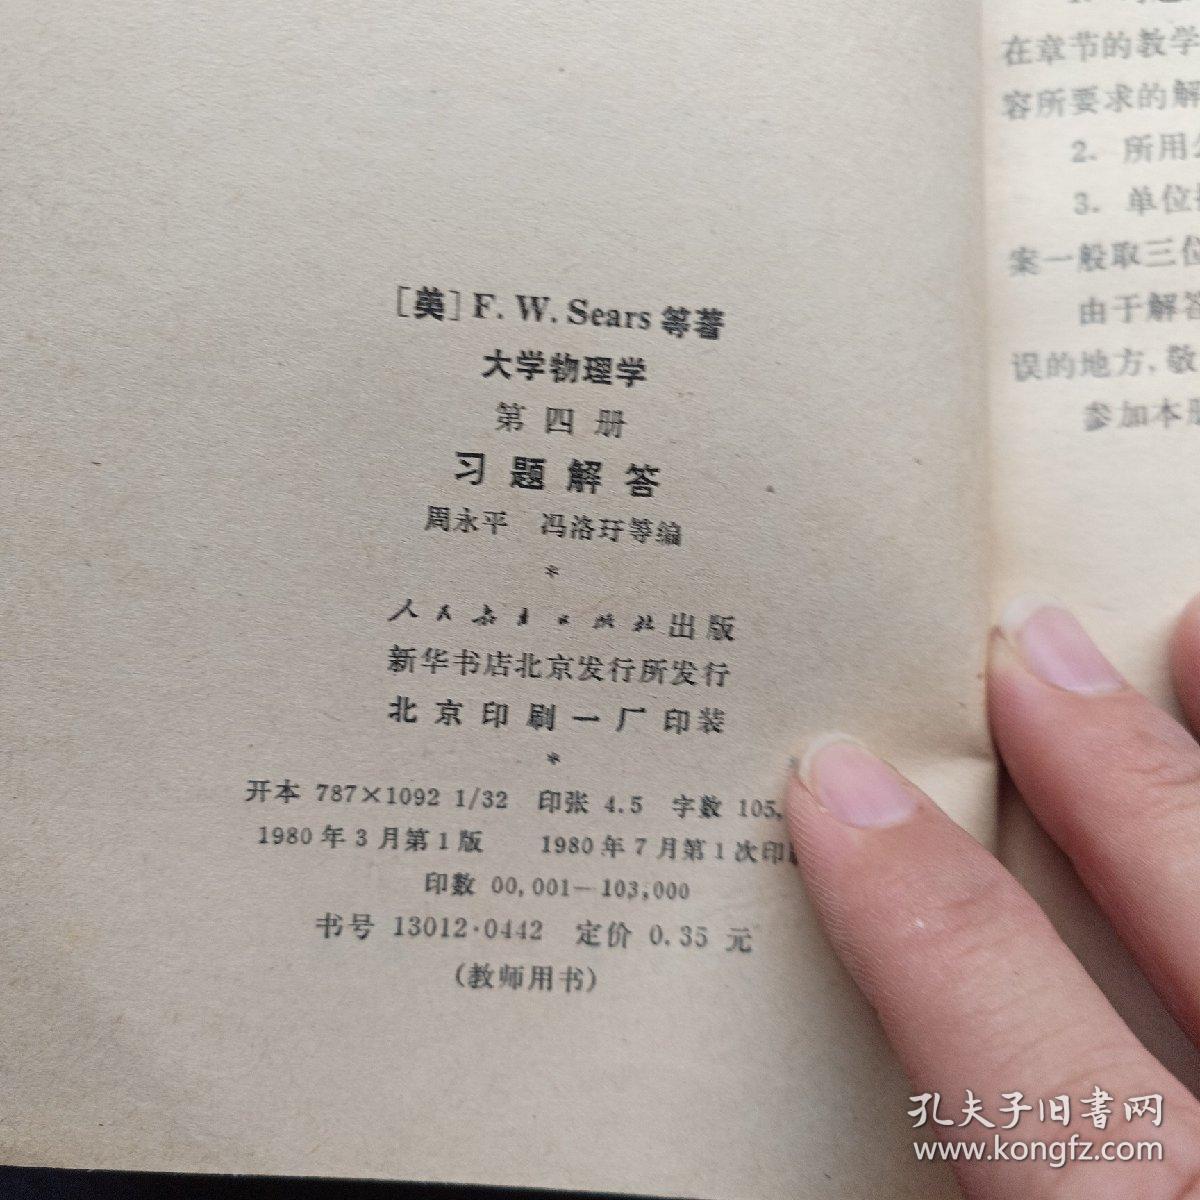 [美] F. W. Sears 等著
大学物理学
第四册
习题解答
周永平 冯洛玗等编
*
人民教育出版社出版
新华书店北京发行所发行
北京印刷一厂印装
*
开本 787×1092 1/32 印张 4.5 字数 105,
1980 年 3 月第 1 版 1980 年 7 月第 1 次印
印数 00,001—103,000
书号 13012·0442 定价 0.35 元
(教师用书)
在章节的教学
容所要求的解
2. 所用
3. 单位
案一般取三位
由于解答
误的地方,敬
参加本册
孔夫子旧书网
www.kongfz.com